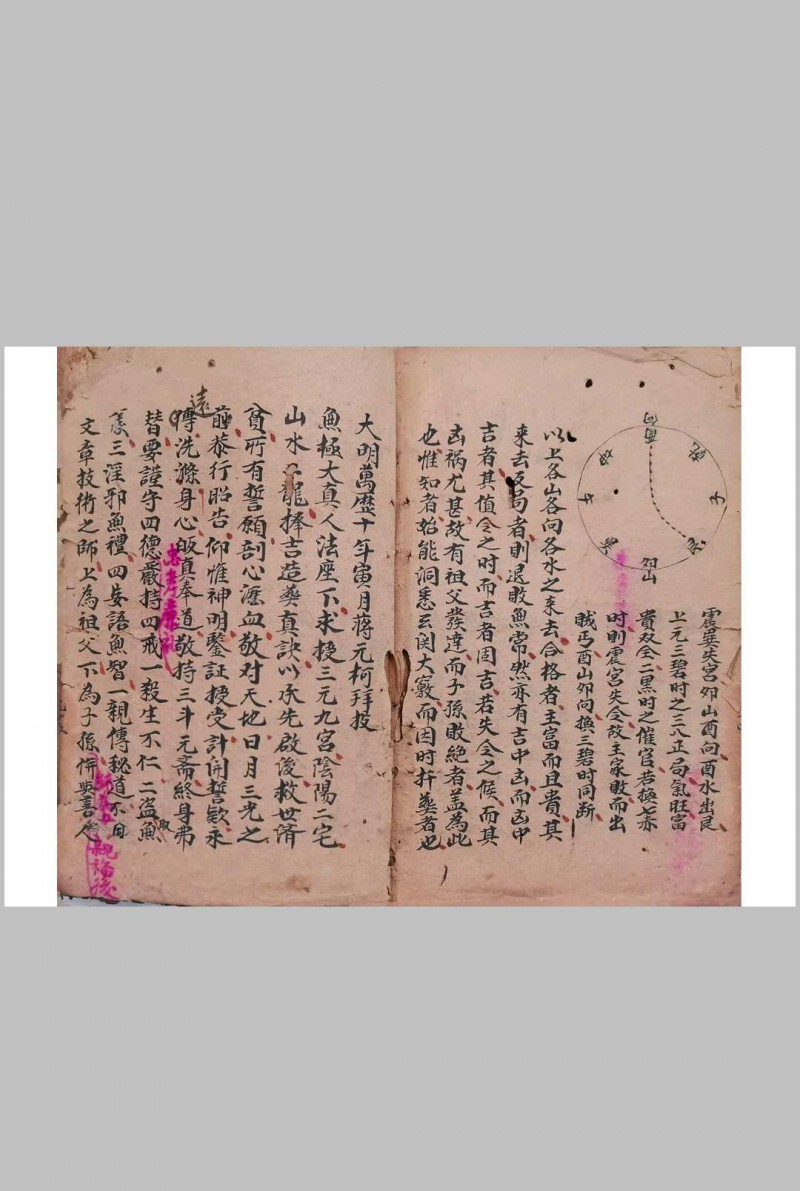 震巽失宮卯山酉向酉水出艮
上元三碧时之三八正局氣旺富
貴双全二黒时之催官若換七赤
时則震宮失令故主家敗而出
賊丐酉山卯向換三碧时同斷
以上各山各向各水之来去合格者主富而且貴其
来去反局者則退敗魚常然亦有吉中凶而凶中
吉者其值令之时而吉者固吉若失令之候而其
凶禍尤甚故有祖父發達而子孫敗絕者盖為此
也惟知者始能洞悉玄関大竅而因时扦葬者也
子
卯山
大明萬歷十年寅月蒋元柯拜投
魚極大真人法座下求授三元九宮陰陽二宅
山水二龍捧吉造葬真訣以承先啟後救世濟
貧所有誓願剖心瀝血敬对天地日月三光之
前恭行昭告仰惟神明鑒証授受計開誓欵永
遠
博洗滌身心皈真奉道敬持三斗元斋終身弗
替要謹守四德嚴持四戒一殺生不仁二盗魚
取
義三淫邪魚禮四妄語魚智一親傳秘道不日
文章技術之師上為祖父下為子孫併與善人